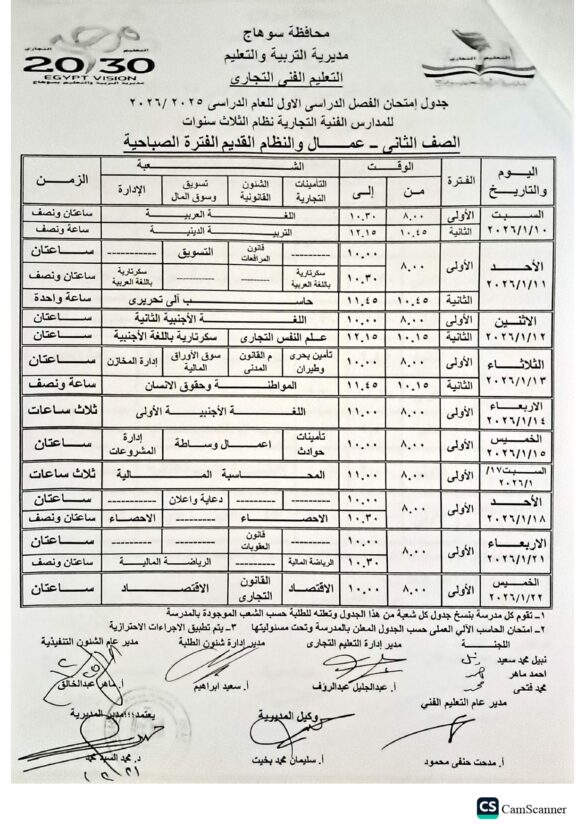 محافظة سوهاج
مديرية التربية والتعليم
التعليم الفنى التجارى
التعليم التجارى
20/30
EGYPT VISION
مديرية التربية والتعليم بسوهاج
جدول إمتحان الفصل الدراسى الاول للعام الدراسى ٢٠٢٥ /٢٠٢٦
للمدارس الفنية التجارية نظام الثلاث سنوات
الصف الثانى - عمال والنظام القديم الفترة الصباحية
اليوم والتاريخ الفترة الوقت الشعبة الزمن
من إلى التأمينات التجارية الشئون القانونية تسويق وسوق المال الإدارة
السبت ٢٠٢٦/١/١٠ الأولى ٨,٠٠ ١٠,٣٠ اللغة العربية ساعتان ونصف
الثانية ١٠,٤٥ ١٢,١٥ التربية الدينية ساعة ونصف
الأحد ٢٠٢٦/١/١١ الأولى ٨,٠٠ ١٠,٠٠ ---------- قانون المرافعات التسويق ---------- ساعتان
١٠,٣٠ سكرتارية باللغة العربية ---------- ---------- سكرتارية باللغة العربية ساعتان ونصف
الثانية ١٠,٤٥ ١١,٤٥ حاسب آلى تحريرى ساعة واحدة
الاثنين ٢٠٢٦/١/١٢ الأولى ٨,٠٠ ١٠,٠٠ اللغة الأجنبية الثانية ساعتان
الثانية ١٠,١٥ ١٢,١٥ علم النفس التجارى سكرتارية باللغة الأجنبية ساعتان
الثلاثاء ٢٠٢٦/١/١٣ الأولى ٨,٠٠ ١٠,٠٠ تأمين بحرى وطيران م القانون المدنى سوق الأوراق المالية إدارة المخازن ساعتان
الثانية ١٠,١٥ ١١,٤٥ المواطنة وحقوق الانسان ساعة ونصف
الاربعاء ٢٠٢٦/١/١٤ الأولى ٨,٠٠ ١١,٠٠ اللغة الأجنبية الأولى ثلاث ساعات
الخميس ٢٠٢٦/١/١٥ الأولى ٨,٠٠ ١٠,٠٠ تأمينات حوادث اعمال وساطة إدارة المشروعات ساعتان
السبت١٧/ ٢٠٢٦/١ الأولى ٨,٠٠ ١١,٠٠ المحاسبة المالية ثلاث ساعات
الأحد ٢٠٢٦/١/١٨ الأولى ٨,٠٠ ١٠,٠٠ ---------- ---------- دعاية واعلان ---------- ساعتان
١٠,٣٠ الاحصاء ---------- الاحصاء ساعتان ونصف
الاربعاء ٢٠٢٦/١/٢١ الأولى ٨,٠٠ ١٠,٠٠ ---------- قانون العقوبات ---------- ---------- ساعتان
١٠,٣٠ الرياضة المالية ---------- الرياضة المالية ساعتان ونصف
الخميس ٢٠٢٦/١/٢٢ الأولى ٨,٠٠ ١٠,٠٠ الاقتصاد القانون التجارى الاقتصاد ساعتان
١ـ تقوم كل مدرسة بنسخ جدول كل شعبة من هذا الجدول وتعلنه للطلبة حسب الشعب الموجودة بالمدرسة
٢ـ امتحان الحاسب الآلي العملي حسب الجدول المعلن بالمدرسة وتحت مسئوليتها ٣ـ يتم تطبيق الاجراءات الاحترازية
اللجنة مدير إدارة التعليم التجارى مدير إدارة شئون الطلبة مدير عام الشئون التنفيذية
نبيل محمد سعيد
احمد ماهر
محمد فتحى
أ. عبدالجليل عبدالرؤف أ. سعيد ابراهيم أ. ماهر عبدالخالق
مدير عام التعليم الفني وكيل المديرية يعتمد،،، مدير المديرية
أ. مدحت حنفى محمود أ. سليمان محمد بخيت د. محمد السيد محمد
CS CamScanner